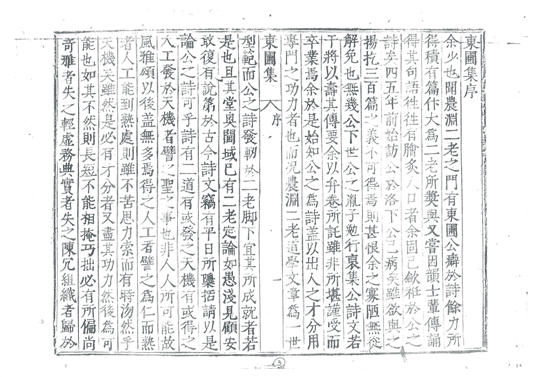 東圃集序
余少也聞農淵二老之門有東圃公癖於詩餘力所
得積有篇什大爲二老所奬與又嘗因韻士輩傳誦
得其句語往往有膾炙人口者余固已歆袵於公之
詩矣四五年前始訪公於洛下公已病矣雖欲與之
揚扢三百篇之義不可得焉則甚恨余之寡陋無從
解免也無幾公下世公之胤子勉行裒集公詩文若
干將以壽其傳要余以弁卷所託雖非所堪謹受而
卒業焉余於是始知公之爲詩盖以出人之才分用
專門之功力者也而況農淵二老道學文章爲一世
型範而公之詩發軔於二老脚下宜其所成就者若
是也且其堂奧閫域已有二老定論如愚淺見顧安
敢復有說第於古今詩文竊有平日所隱括請以是
論公之詩可乎詩有二道有或發之天機有或得之
人工發於天機者譬之聖之事也非人人所可能故
風雅頌以後盖無多焉得之人工者譬之爲仁而熟
者人工能到熟處則雖不苦思力索而有時沕然乎
天機矣雖然是必有才分者又盡其功力然後爲可
能也如其不然則長短不能相掩巧拙必有所偏尙
奇雅者失之輕虛務典實者失之陳冗組織者歸於
東圃集
序